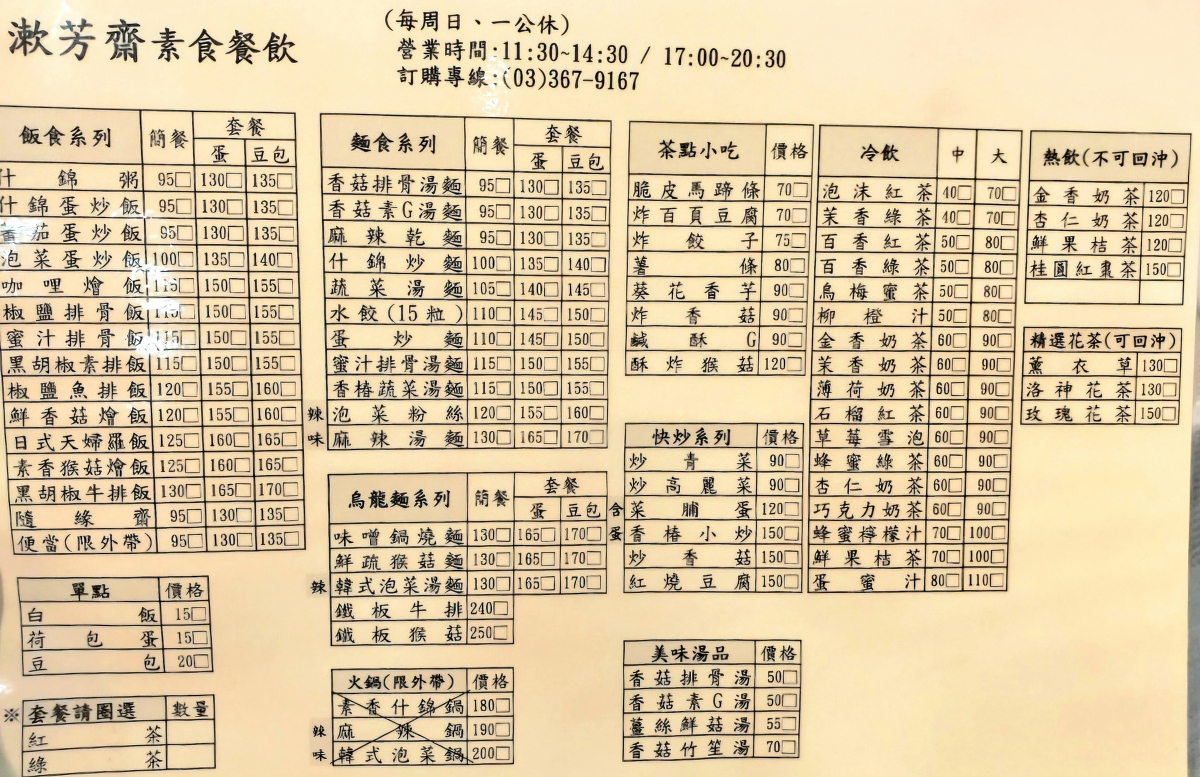 漱芳齋素食餐飲
(每周日、一公休)
營業時間:11:30~14:30 / 17:00~20:30
訂購專線:(03)367-9167
飯食系列 簡餐 套餐
蛋 豆包
什錦粥 95□ 130□ 135□
什錦蛋炒飯 95□ 130□ 135□
蕃茄蛋炒飯 95□ 130□ 135□
泡菜蛋炒飯 100□ 135□ 140□
咖哩燴飯 115□ 150□ 155□
椒鹽排骨飯 115□ 150□ 155□
蜜汁排骨飯 115□ 150□ 155□
黑胡椒素排飯 115□ 150□ 155□
椒鹽魚排飯 120□ 155□ 160□
鮮香菇燴飯 120□ 155□ 160□
日式天婦羅飯 125□ 160□ 165□
素香猴菇燴飯 125□ 160□ 165□
黑胡椒牛排飯 130□ 165□ 170□
隨緣齋 95□ 130□ 135□
便當(限外帶) 95□ 130□ 135□
單點 價格
白飯 15□
荷包蛋 15□
豆包 20□
※ 套餐請圈選 數量
紅茶
綠茶
麵食系列 簡餐 套餐
蛋 豆包
香菇排骨湯麵 95□ 130□ 135□
香菇素G湯麵 95□ 130□ 135□
麻辣乾麵 95□ 130□ 135□
什錦炒麵 100□ 135□ 140□
蔬菜湯麵 105□ 140□ 145□
水餃(15粒) 110□ 145□ 150□
蛋炒麵 110□ 145□ 150□
蜜汁排骨湯麵 115□ 150□ 155□
香椿蔬菜湯麵 115□ 150□ 155□
辣 泡菜粉絲 120□ 155□ 160□
味 麻辣湯麵 130□ 165□ 170□
烏龍麵系列 簡餐 套餐
蛋 豆包
味噌鍋燒麵 130□ 165□ 170□
鮮疏猴菇麵 130□ 165□ 170□
辣 韓式泡菜湯麵 130□ 165□ 170□
鐵板牛排 240□
鐵板猴菇 250□
火鍋(限外帶) 價格
素香什錦鍋 180□
辣 麻辣鍋 190□
味 韓式泡菜鍋 200□
茶點小吃 價格
脆皮馬蹄條 70□
炸百頁豆腐 70□
炸餃子 75□
薯條 80□
葵花香芋 90□
炸香菇 90□
鹹酥G 90□
酥炸猴菇 120□
快炒系列 價格
炒青菜 90□
炒高麗菜 90□
含 菜脯蛋 120□
蛋 香椿小炒 150□
炒香菇 150□
紅燒豆腐 150□
美味湯品 價格
香菇排骨湯 50□
香菇素G湯 50□
薑絲鮮菇湯 55□
香菇竹笙湯 70□
冷飲 中 大
泡沫紅茶 40□ 70□
茉香綠茶 40□ 70□
百香紅茶 50□ 80□
百香綠茶 50□ 80□
烏梅蜜茶 50□ 80□
柳橙汁 50□ 80□
金香奶茶 60□ 90□
茉香奶茶 60□ 90□
薄荷奶茶 60□ 90□
石榴紅茶 60□ 90□
草莓雪泡 60□ 90□
蜂蜜綠茶 60□ 90□
杏仁奶茶 60□ 90□
巧克力奶茶 60□ 90□
蜂蜜檸檬汁 70□ 100□
鮮果桔茶 70□ 100□
蛋蜜汁 80□ 110□
熱飲(不可回沖)
金香奶茶 120□
杏仁奶茶 120□
鮮果桔茶 120□
桂圓紅棗茶 150□
精選花茶(可回沖)
薰衣草 130□
洛神花茶 130□
玫瑰花茶 150□